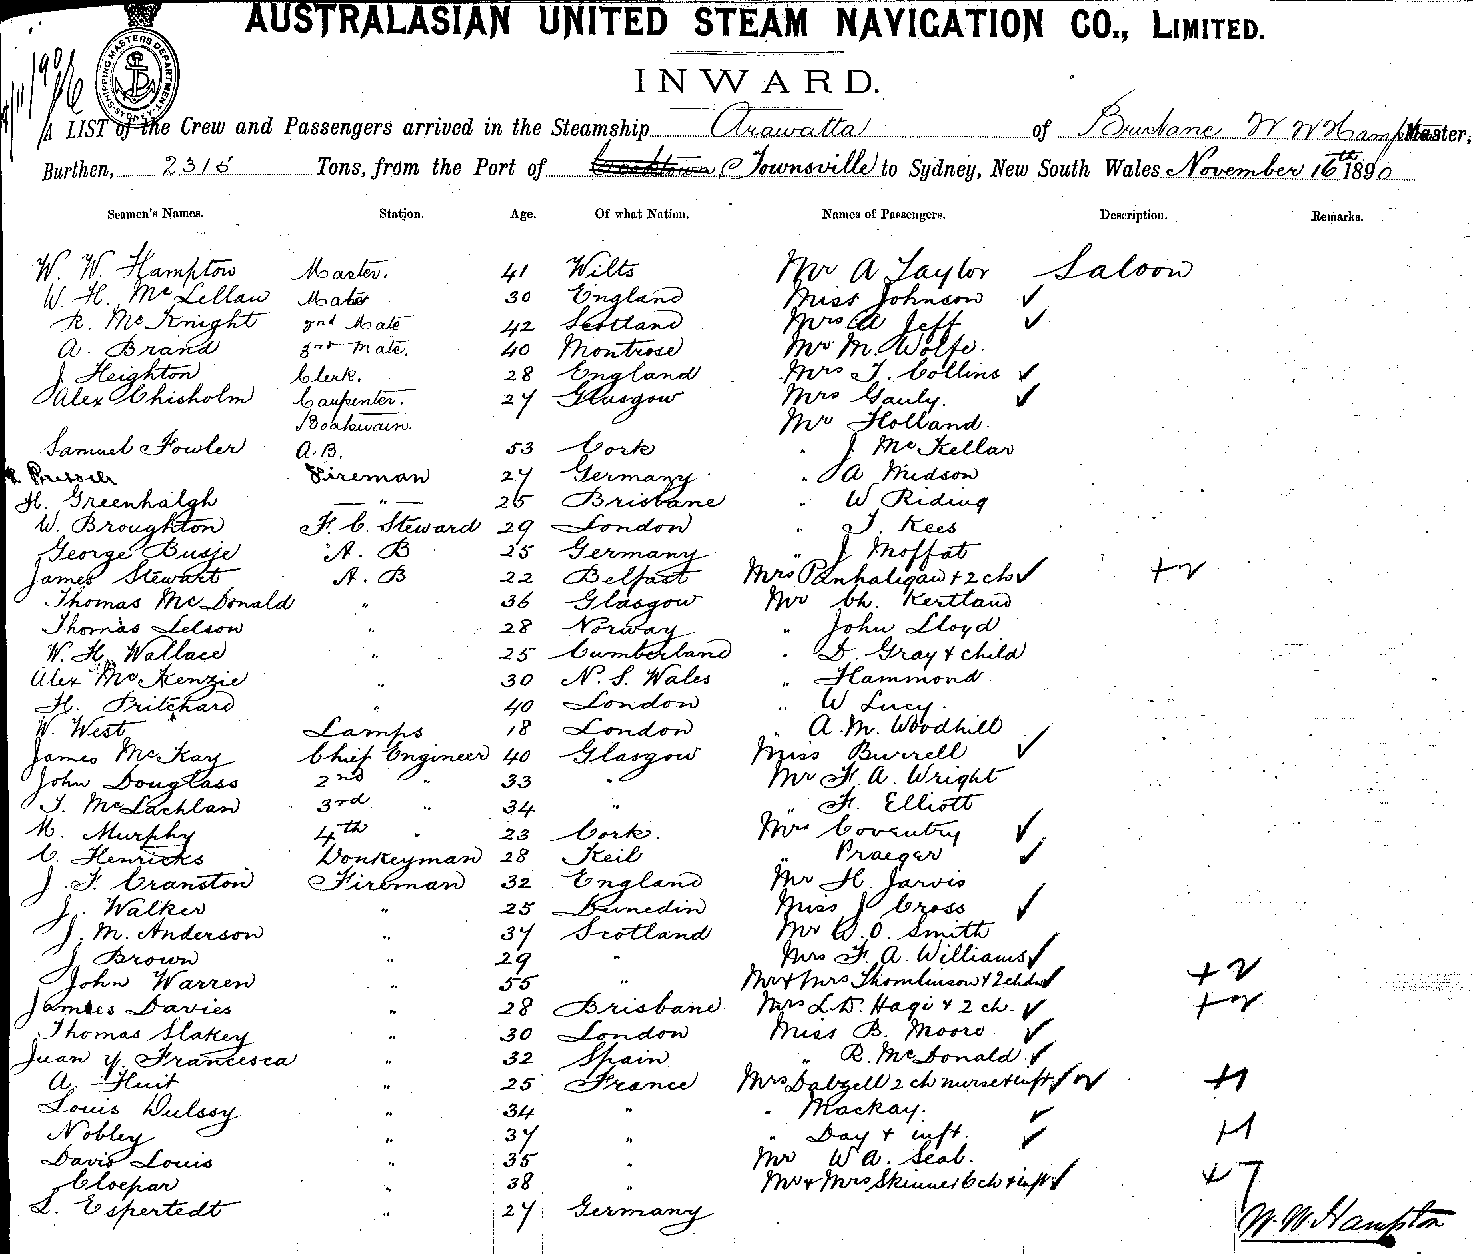 AUSTRALASIAN UNITED STEAM NAVIGATION CO., LIMITED.
INWARD.
A LIST of the Crew and Passengers arrived in the Steamship Arawatta of Brisbane W W Hampton Master,
Burthen, 2315 Tons, from the Port of Cooktown Townsville to Sydney, New South Wales November 16th 1890
Seamen's Names. Station. Age. Of what Nation. Names of Passengers. Description. Remarks.
W. W. Hampton Master. 41 Wilts Mr A Taylor Saloon
W. H. McLellan Mate 30 England Miss Johnson ✓
R. McKnight 2nd Mate 42 Scotland Mrs A Jeff ✓
A. Brand 3rd Mate. 40 Montrose Mr M. Wolfe.
J Heighton Clerk. 28 England Mrs T. Collins ✓
Alex Chisholm Carpenter. 27 Glasgow Mrs Gauly. ✓
Boatswain. Mr Holland.
Samuel Fowler A.B. 53 Cork " J McKellar
Fireman 27 Germany " A Midson
H. Greenhalgh — " — 25 Brisbane " W Riding
W. Broughton F. C. Steward 29 London " T. Kees
George Busje A. B 25 Germany " J Moffat
James Stewart A. B 22 Belfast Mrs Panhaligan + 2 ch ✓ +2
Thomas McDonald " 36 Glasgow Mr Ch. Kertland
Thomas Lelson " 28 Norway " John Lloyd
W. H. Wallace " 25 Cumberland " D. Gray + child
Alex McKenzie " 30 N. S. Wales " Hammond
H. Pritchard " 40 London " W Lucy.
W. West Lamps 18 London " A. M. Woodhill
James McKay Chief Engineer 40 Glasgow Miss Burrell ✓
John Douglass 2nd " 33 " Mr F. A. Wright
T. McLachlan 3rd " 34 " " F. Elliott
M. Murphy 4th " 23 Cork. Mrs Coventry ✓
C. Henricks Donkeyman 28 Keil " Praeger ✓
J. T. Cranston Fireman 32 England Mr H. Jarvis
J. Walker " 25 Dunedin Miss J Cross ✓
J. M. Anderson " 37 Scotland Mr W. O. Smith
J Brown " 29 " Mrs F. A. Williams ✓
John Warren " 55 " Mr + Mrs Thomlinson + 2 chdn ✓ +2
James Davies " 28 Brisbane Mrs L. D. Hagi + 2 ch. ✓ +2
Thomas Slakey " 30 London Miss B. Moore ✓
Juan y Francisca " 32 Spain " R. McDonald ✓
A. Huit " 25 France Mrs Dalzell 2 ch nurse + inft ✓ +1
Louis Dulssy " 34 " " Mackay. ✓
Nobley " 37 " " Day + inft. ✓ +1
Davis Louis " 35 " Mr W A. Seal.
Cloepar " 38 " Mr + Mrs Skinner 6 ch + inft ✓ +7
L. Espertedt " 27 Germany
W. W. Hampton